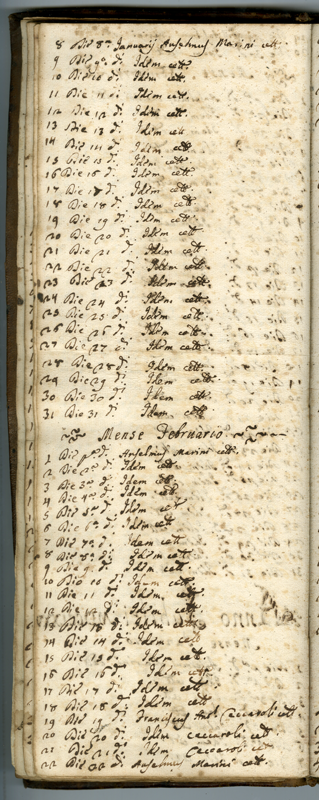 8 Die 8ª Januarij Anselmus Marini cett.
9 Die 9ª dị Idem cett.
10 Die 10 di Idem cett.
11 Die 11 di Idem cett.
12 Die 12 di Idem cett.
13 Die 13 di Idem cett
14 Die 14 di Idem cett
15 Die 15 di Idem cett.
16 Die 16 di Idem cett.
17 Die 17 di Idem cett.
18 Die 18 di Idem cett
19 Die 19 di Idem cett.
20 Die 20 di Idem cett.
21 Die 21 di Idem cett.
22 Die 22 di Idem cett.
23 Die 23 di Idem cett.
24 Die 24 di Idem cett.
25 Die 25 di Idem cett.
26 Die 26 di Idem cett.
27 Die 27 di Idem cett.
28 Die 28 di Idem cett.
29 Die 29 di Idem cett.
30 Die 30 di Idem cett.
31 Die 31 di Idem cett.
Mense Februario
1 Die pª di Anselmus Marini cett.
2 Die 2ª di Idem cett.
3 Die 3ª di Idem cett.
4 Die 4ª di Idem cett.
5 Die 5ª di Idem cett
6 Die 6ª di Idem cett
7 Die 7ª di Idem cett
8 Die 8ª di Idem cett.
9 Die 9ª di Idem cett.
10 Die 10 di Idem cett
11 Die 11 di Idem cett.
12 Die 12 di Idem cett.
13 Die 13 di Idem cett.
14 Die 14 di Idem cett
15 Die 15 di Idem cett.
16 Die 16 di Idem cett.
17 Die 17 di Idem cett.
18 Die 18 di Idem cett.
19 Die 19 di Franciscus Ceccaroli cett.
20 Die 20 di Idem Ceccaroli cett.
21 Die 21 di Idem Ceccaroli cett
22 Die 22 di Anselmus Marini cett.